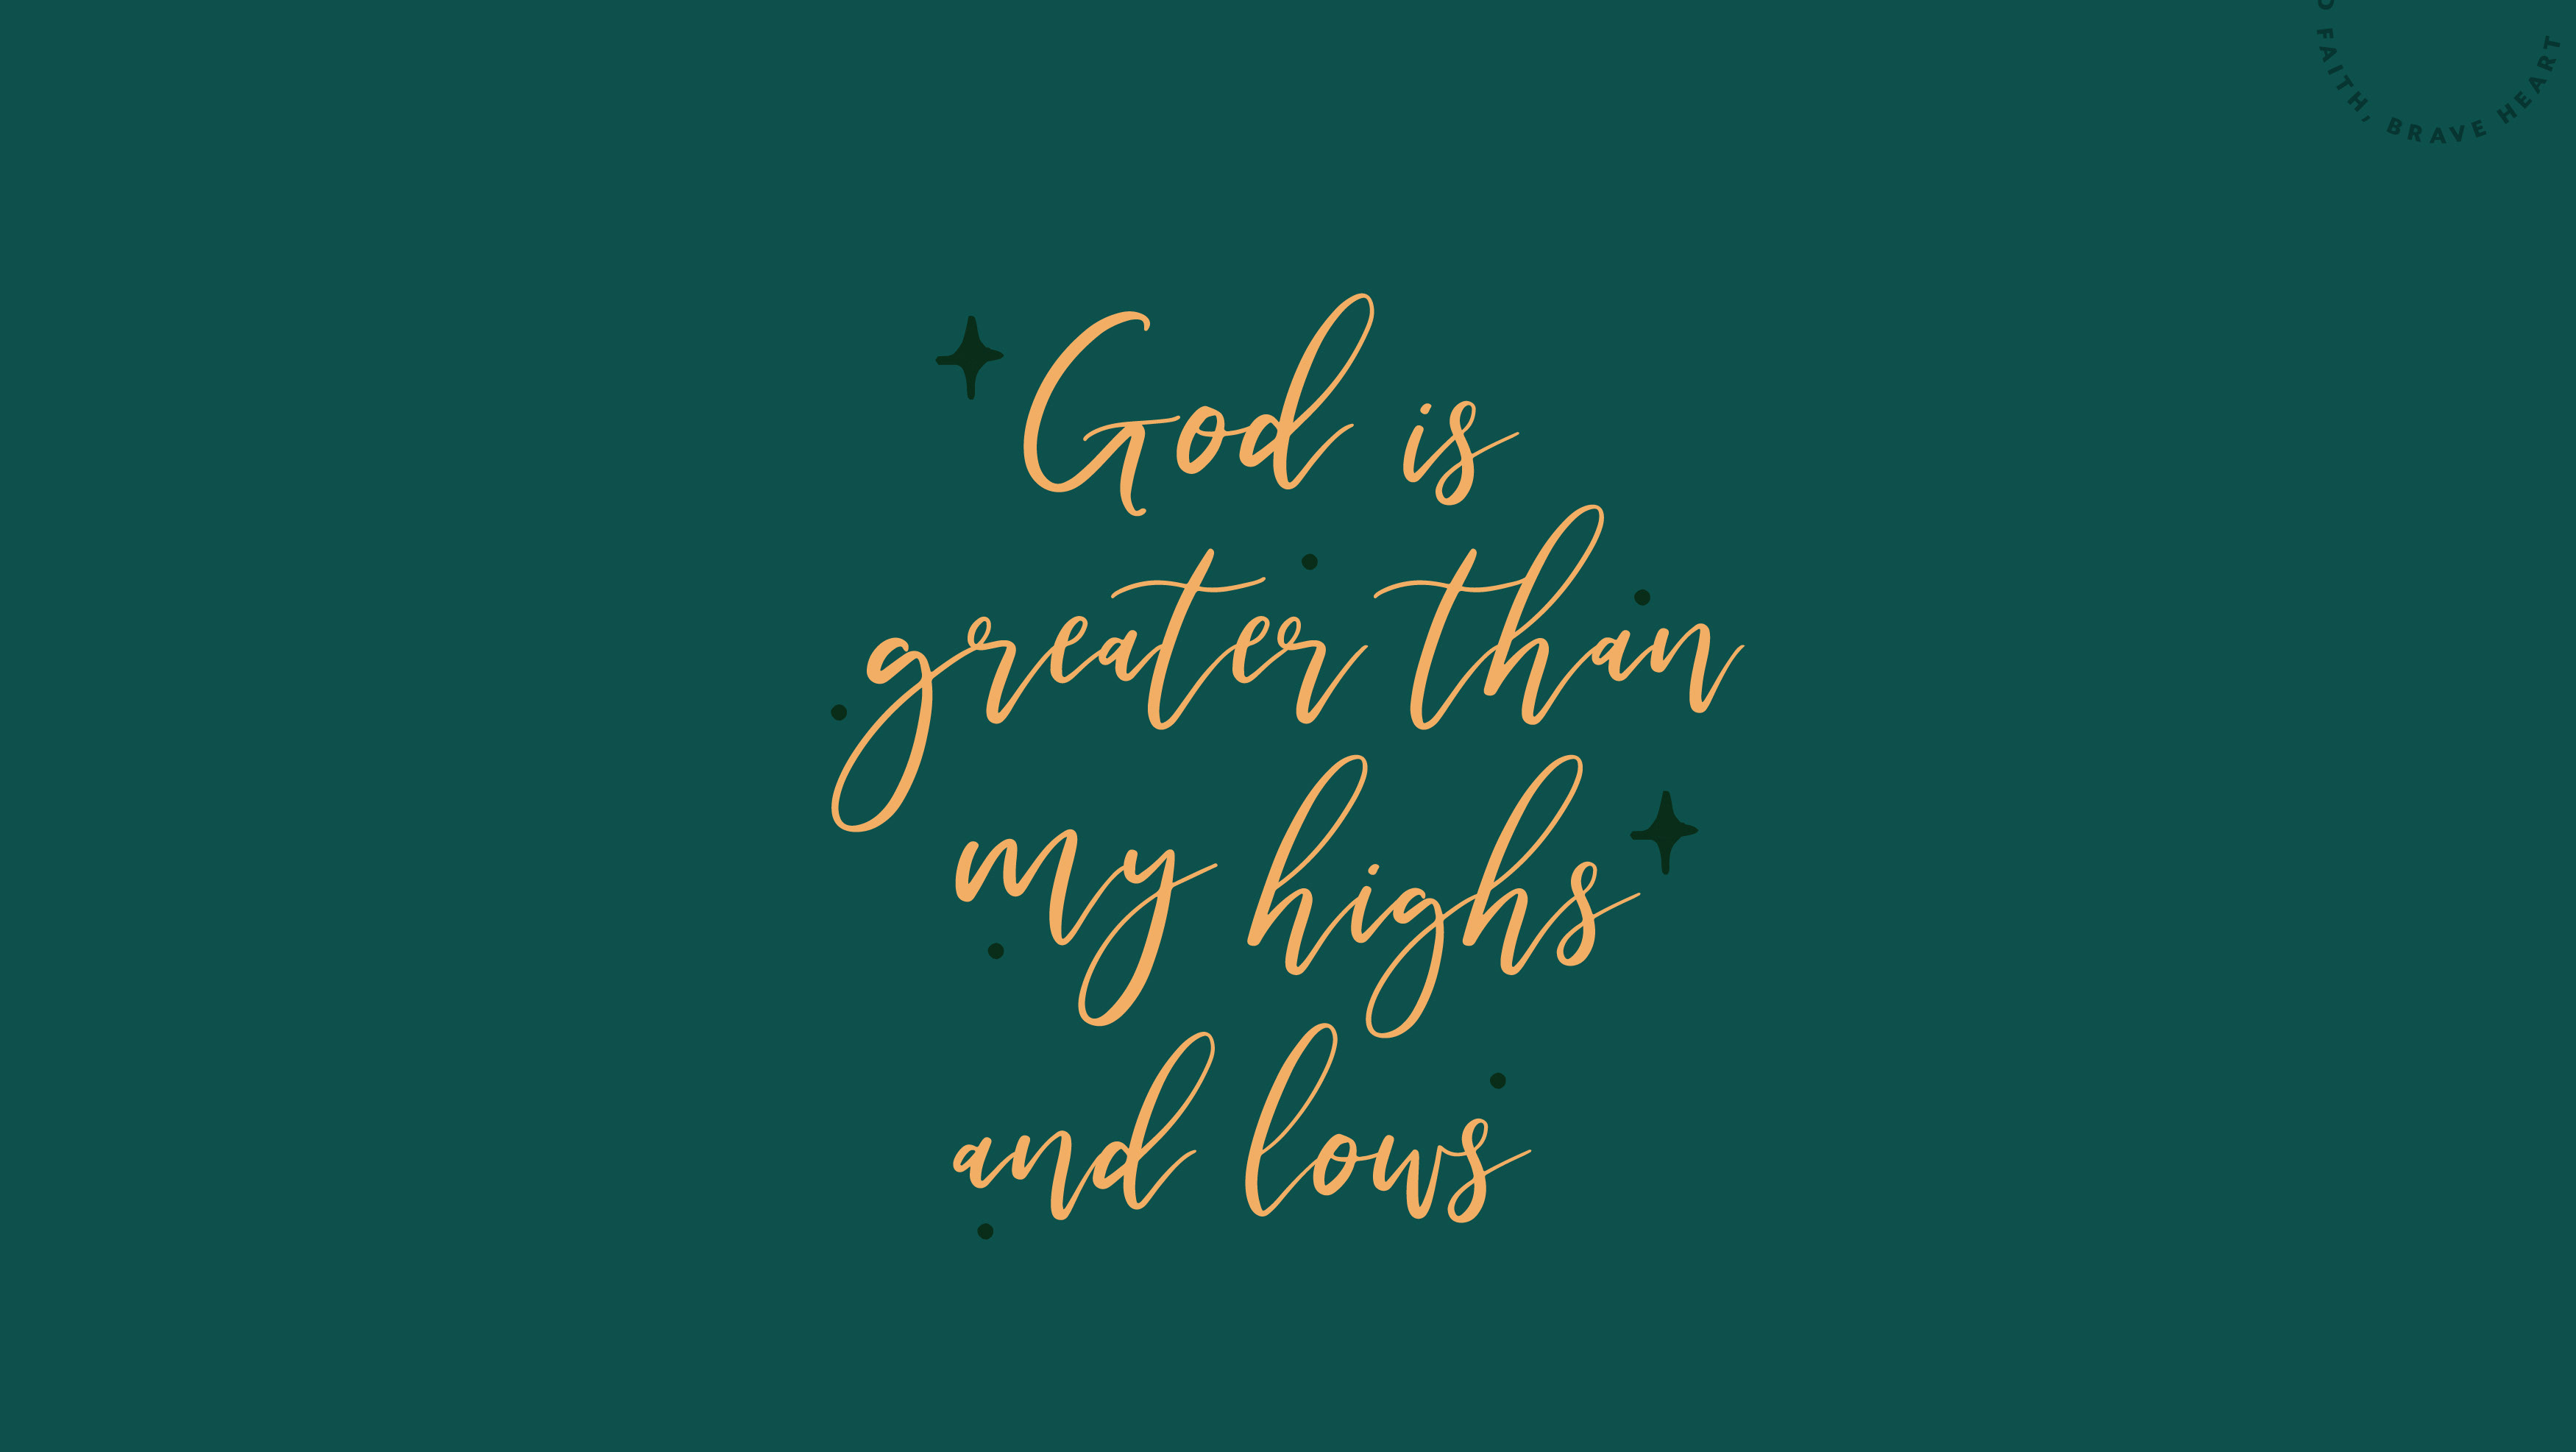 FAITH, BRAVE HEART
God is
greater than
my highs
and lows